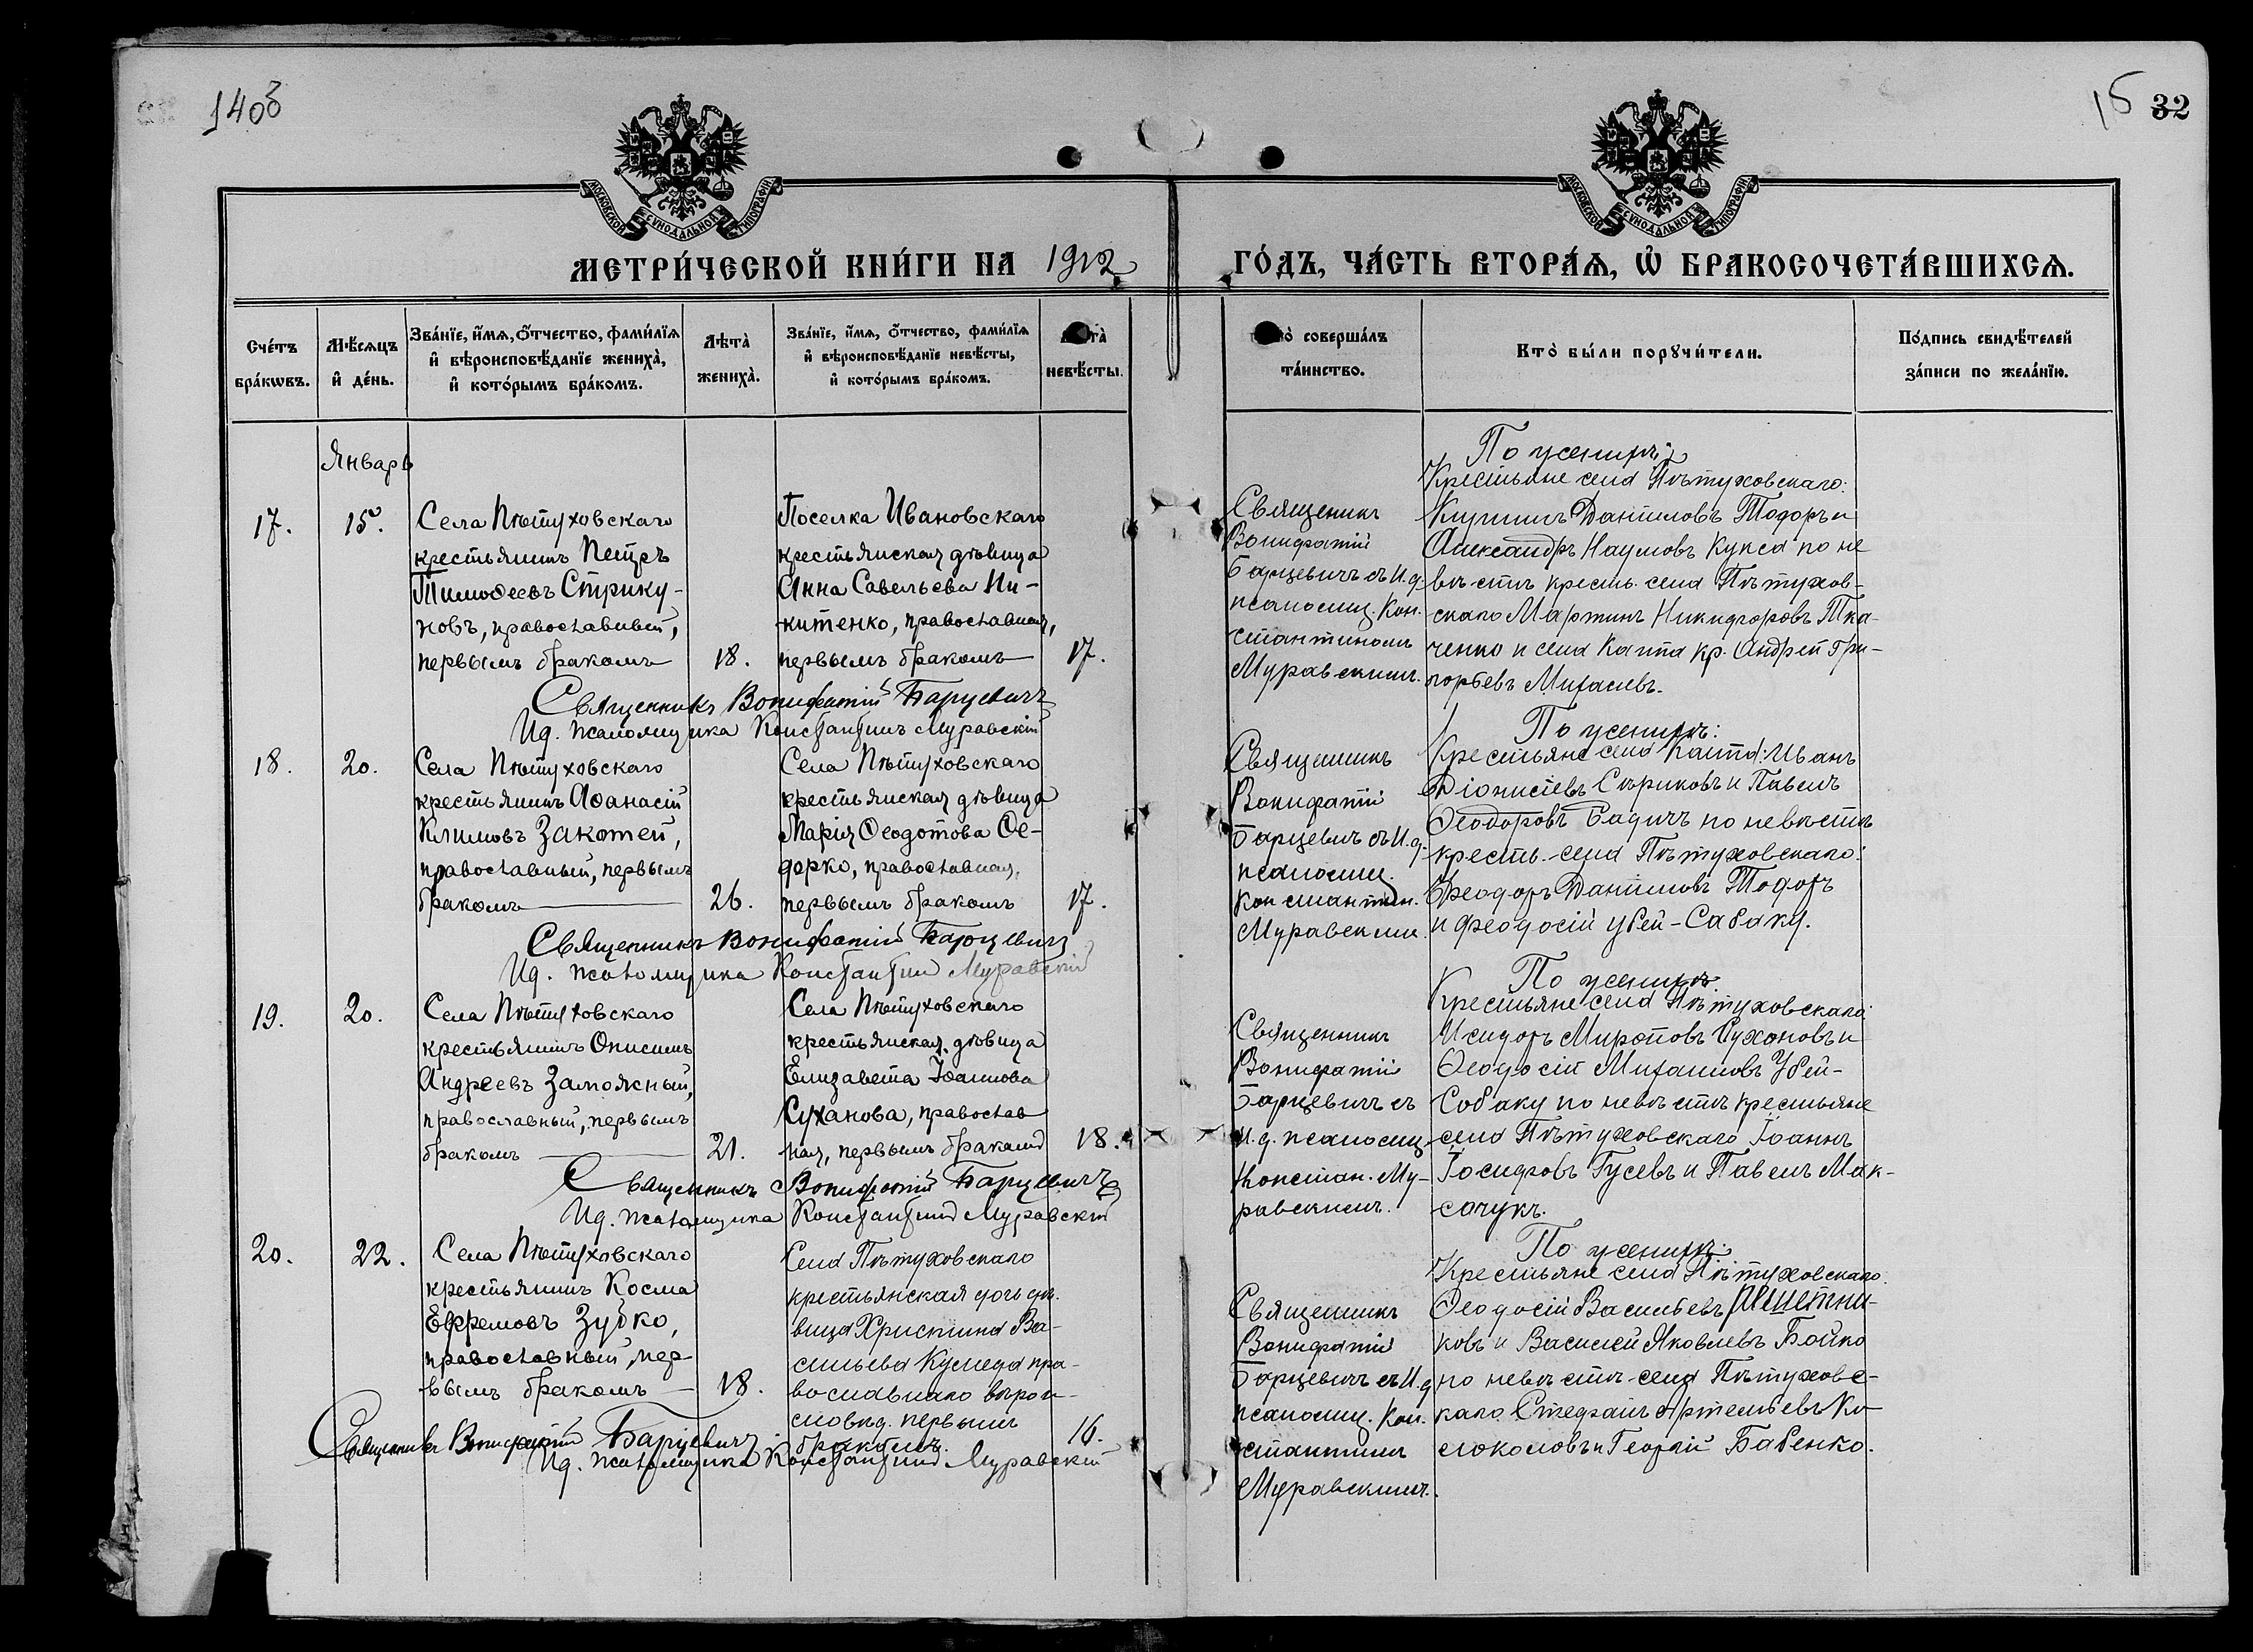 140об
15 32
МОСКОВСКОЙ СУНОДАЛЬНОЙ ТИПОГРАФІИ
МОСКОВСКОЙ СУНОДАЛЬНОЙ ТИПОГРАФІИ
МЕТРИ́ЧЕСКОЙ КНИ́ГИ НА 1912 ГО́ДЪ, ЧА́СТЬ ВТОРА́Ѧ, Ѽ БРАКОСОЧЕТА́ВШИХСѦ.
Сче́тъ
бра́кωвъ.
Мѣ́сѧцъ
и҆ де́нь.
Зва́нїе, и҆́мѧ, ѻ҆́тчество, фами́лїѧ
и҆ вѣроисповѣ́данїе жениха̀,
и҆ кото́рымъ бра́комъ.
Лѣта̀
жениха̀.
Зва́нїе, и҆́мѧ, ѻ҆́тчество, фами́лїѧ
и҆ вѣроисповѣ́данїе невѣ́сты,
и҆ кото́рымъ бра́комъ.
невѣ́сты.
соверша́лъ
та́инство.
Кто̀ бы́ли порꙋчи́тели.
По́дпись свидѣ́телей
за́писи по жела́нїю.
Январь
17.
15.
Села Пѣтуховскаго
крестьянинъ Петръ
Тимоѳеевъ Стрику-
новъ, православный,
первымъ бракомъ
18.
Поселка Ивановскаго
крестьянская дѣвица
Анна Савельева Ни-
китенко, православная,
первымъ бракомъ
17.
Священникъ
Вонифатій
Барцевичъ съ И.д.
псаломщ. Кон-
стантиномъ
Муравскимъ.
По женихѣ
Крестьяне села Пѣтуховскаго:
Даниловъ Тодоръ и
Александръ Наумовъ Кукса по не
вѣстѣ кресть. села Пѣтухов-
скаго Мартинъ Никифоровъ Тка-
ченко и села Каипа кр. Андрей Гри-
горьевъ
Священникъ Вонифатій Барцевичъ
Ид. псаломщика Константинъ Муравскій
18.
20.
Села Пѣтуховскаго
крестьянинъ Аѳанасій
Климовъ Закотей,
православный, первымъ
бракомъ
26.
Села Пѣтуховскаго
крестьянская дѣвица
Марія Ѳеодотова Ѳе-
дорко, православная,
первымъ бракомъ
17.
Священникъ
Вонифатій
Барцевичъ съ И.д.
псаломщ.
Константин.
Муравским.
По женихѣ:
Крестьяне села Каипа: Иванъ
Діонисіевъ и Павелъ
Ѳеодоровъ Бадичъ по невѣстѣ
кресть. села Пѣтуховскаго:
Ѳеодоръ Даниловъ Тодоръ
и Феодосій Убей-Сабаку.
Священникъ Вонифатій Барцевичъ
Ид. псаломщика Константинъ Муравскій
19.
20.
Села Пѣтуховскаго
крестьянинъ Онисимъ
Андреевъ Замоясный,
православный, первымъ
бракомъ
21.
Села Пѣтуховскаго
крестьянская дѣвица
Елизавета Іоаннова
Суханова, православ
ная, первымъ бракомъ
18.
Священникъ
Вонифатій
Барцевичъ съ
И.д. псаломщ.
Констан. Му-
равскимъ.
По женихѣ:
Крестьяне села Пѣтуховскаго:
Исидоръ Мироновъ Сухановъ и
Ѳеодосій Михаиловъ Убей-
Собаку по невѣстѣ крестьяне
села Пѣтуховскаго Іоаннъ
Іосифовъ Гусевъ и Павелъ Мак-
сачукъ.
Священникъ Вонифатій Барцевичъ
Ид. псаломщика Константинъ Муравскій
20.
22.
Села Пѣтуховскаго
крестьянинъ Косма
Ефремовъ Зубко,
православный, пер
вымъ бракомъ
18.
Села Пѣтуховскаго
крестьянская дочь дѣ-
вица Христина Ва-
сильева пра-
вославнаго вѣрои-
сповѣд. первымъ
бракомъ.
16.
Священникъ
Вонифатій
Барцевичъ съ И.д
псаломщ. Кон-
стантиномъ
Муравскимъ.
По женихѣ:
Крестьяне села Пѣтуховскаго.
Ѳеодосій Васильевъ Решетни-
ковъ и Василій Яковлевъ Бойко
по невѣстѣ села Пѣтуховс-
каго Стефанъ Артемьевъ Ко
локоловъ и Георгій Бабенко.
Священникъ Вонифатій Барцевичъ
Ид. псаломщика Константинъ Муравскій